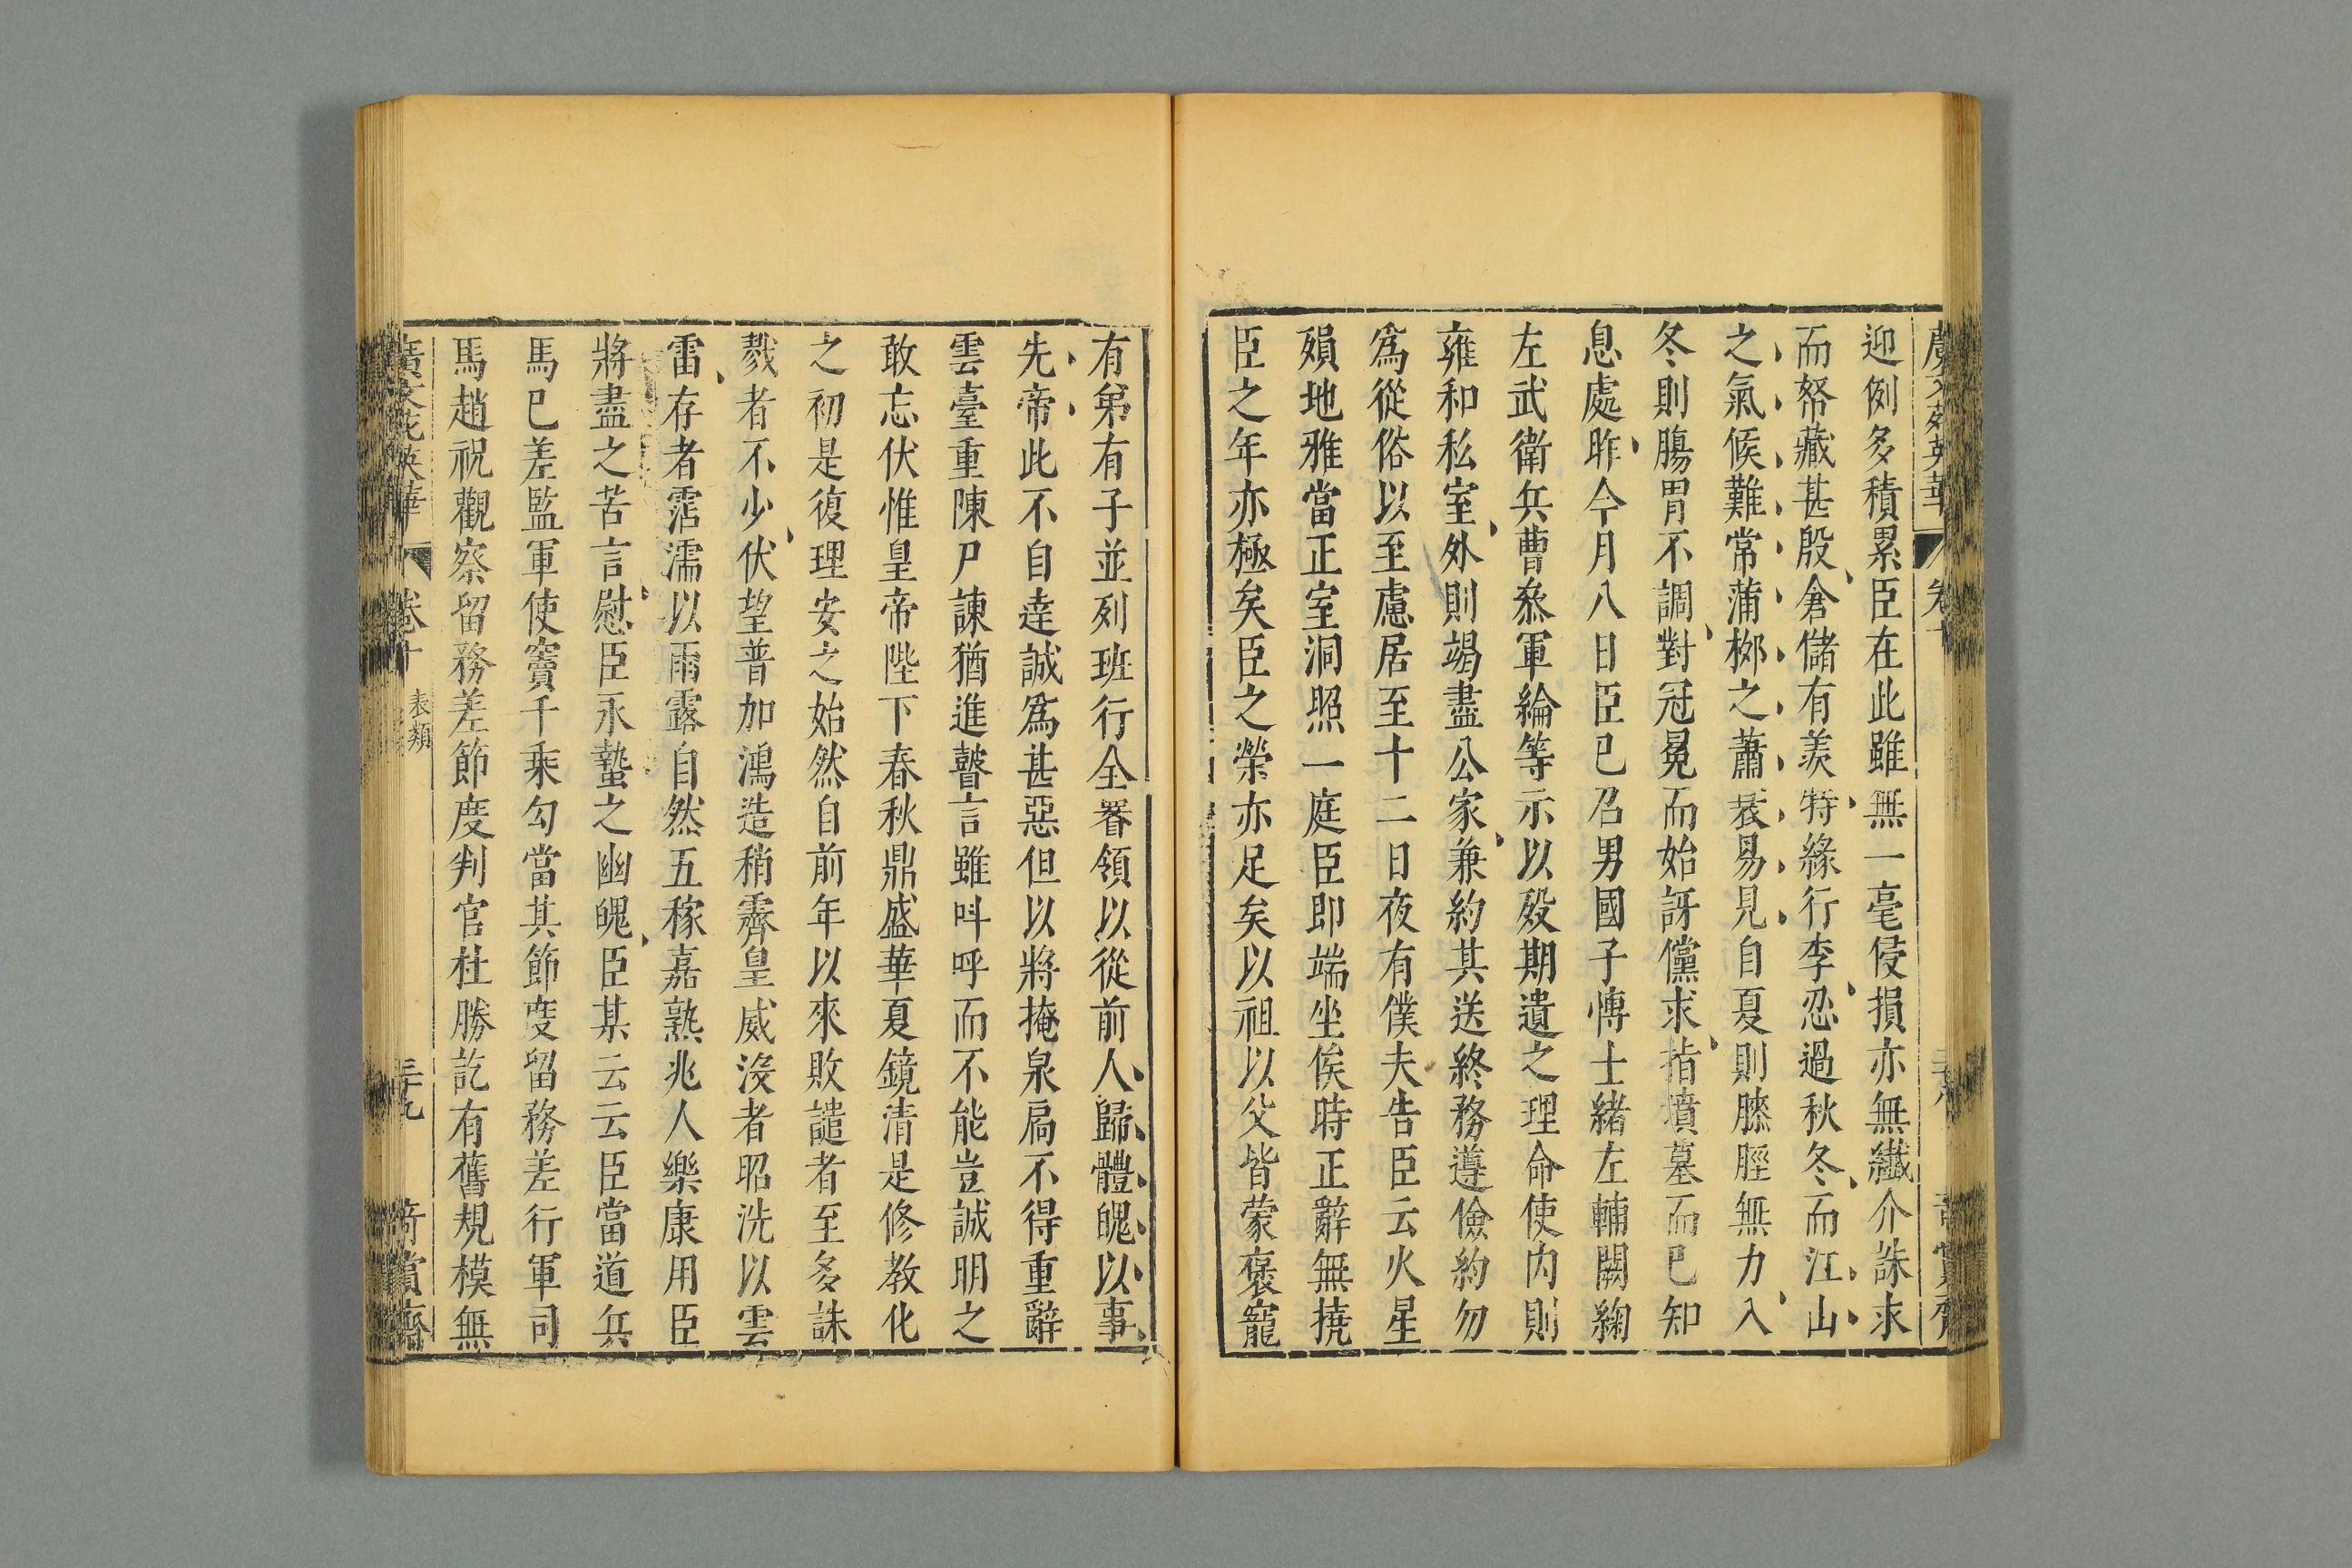 廣文苑英華 卷十
迎例多積累臣在此雖無一毫侵損亦無纖介誅求
而帑藏甚殷倉儲有羨特緣行李忍過秋冬而江山
之氣候難常蒲柳之蕭衰易見自夏則膝脛無力入
冬則腸胃不調對冠冕而始訝儻求指墳墓而巳知
息處昨今月八日臣巳召男國子慱士緒左輔闕絢
左武衛兵曹叅軍綸等示以歿期遺之理命使内則
雍和私室外則竭盡公家兼約其送終務遵儉約勿
爲從俗以至慮居至十二日夜有僕夫告臣云火星
殞地雅當正室洞照一庭臣即端坐俟時正辭無撓
臣之年亦極矣臣之榮亦足矣以祖以父皆蒙褒寵
有弟有子並列班行全䐃領以從前人歸體魄以事
先帝此不自逹誠爲甚惡但以將掩泉扃不得重辭
雲臺重陳尸諫猶進瞽言雖呌呼而不能豈誠明之
敢忘伏惟皇帝陛下春秋鼎盛華夏鏡清是修教化
之初是復理安之始然自前年以來敗譴者至多誅
戮者不少伏望普加鴻造稍霽皇威沒者昭洗以雲
雷存者霑濡以雨露自然五稼嘉熟兆人樂康用臣
將盡之苦言慰臣永蟄之幽魄臣某云云臣當道兵
馬巳差監軍使竇千乘勾當其節度留務差行軍司
馬趙祝觀察留務差節度判官杜勝訖有舊規模無
廣文苑英華 卷十 表類 三九 奇賞齋